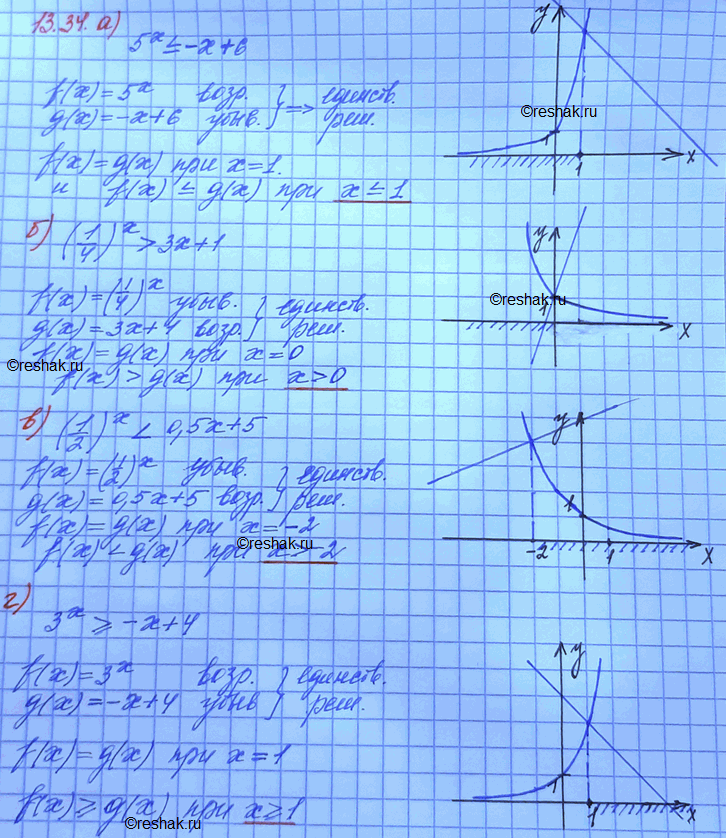 13.34. а)
5^x ≤ -x+6
f(x) = 5^x возр. } => единств.
g(x) = -x+6 убыв. } реш.
f(x) = g(x) при x=1.
и f(x) ≤ g(x) при x ≤ 1
y
1
1
x
©reshak.ru
б) (1/4)^x > 3x+1
f(x) = (1/4)^x убыв. } единств.
g(x) = 3x+4 возр. } реш.
f(x) = g(x) при x=0
©reshak.ru
f(x) > g(x) при x>0
y
1
x
©reshak.ru
в) (1/2)^x < 0,5x+5
f(x) = (1/2)^x убыв. } единств.
g(x) = 0,5x+5 возр. } реш.
f(x) = g(x) при x=-2
f(x) < g(x) при x>-2
©reshak.ru
y
1
-2
1
x
г)
3^x ≥ -x+4
f(x) = 3^x возр. } единств.
g(x) = -x+4 убыв } реш.
f(x) = g(x) при x=1
f(x) ≥ g(x) при x≥1
©reshak.ru
y
1
1
x